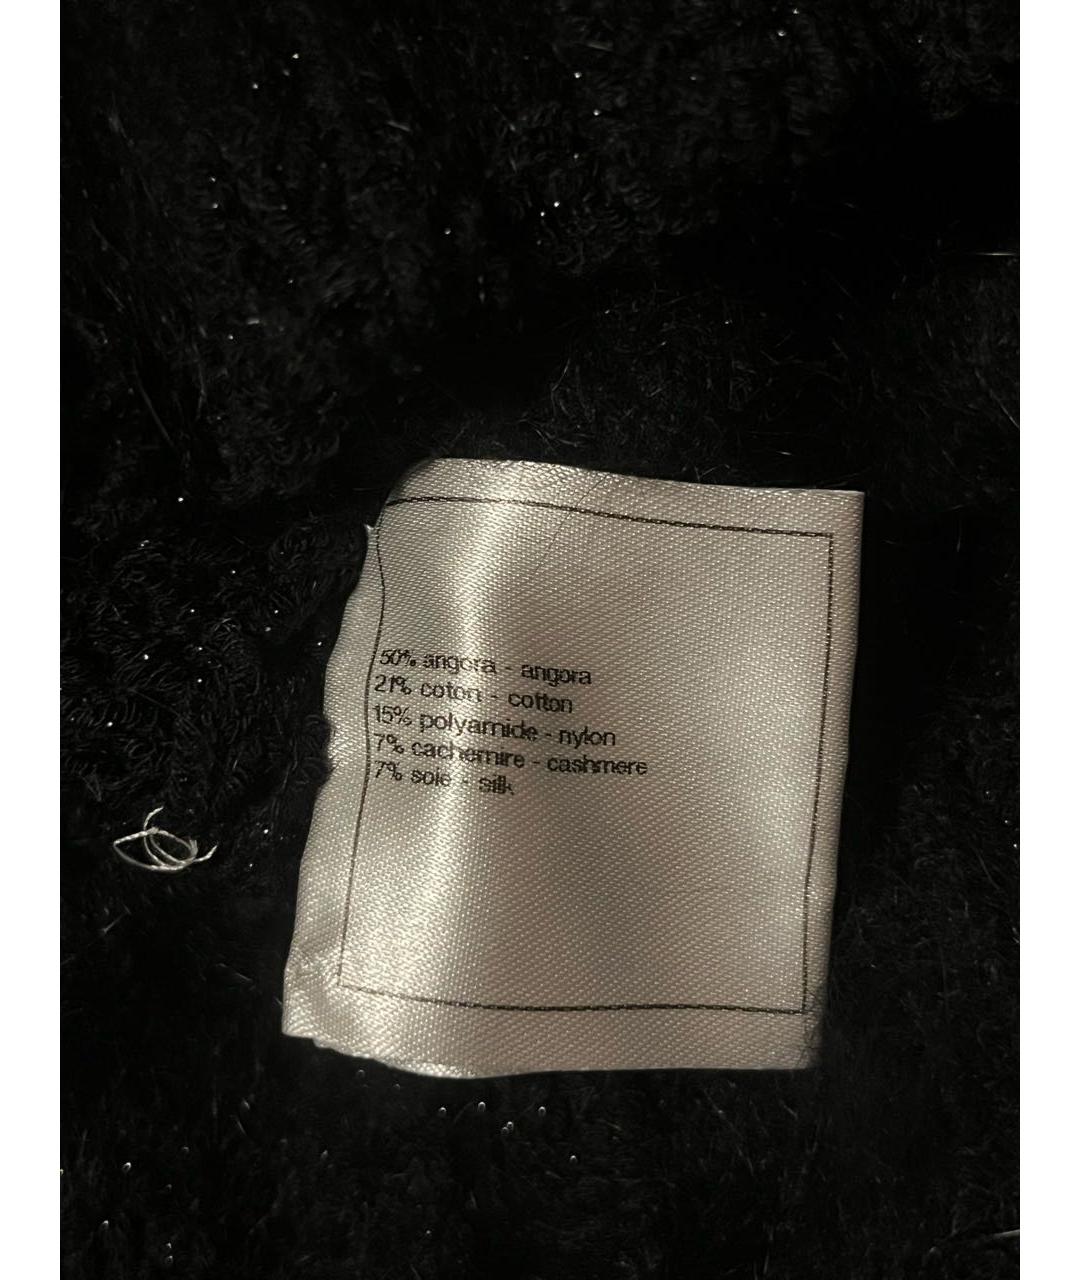 50% angora - angora
21% coton - cotton
15% polyamide - nylon
7% cachemire - cashmere
7% soie - silk